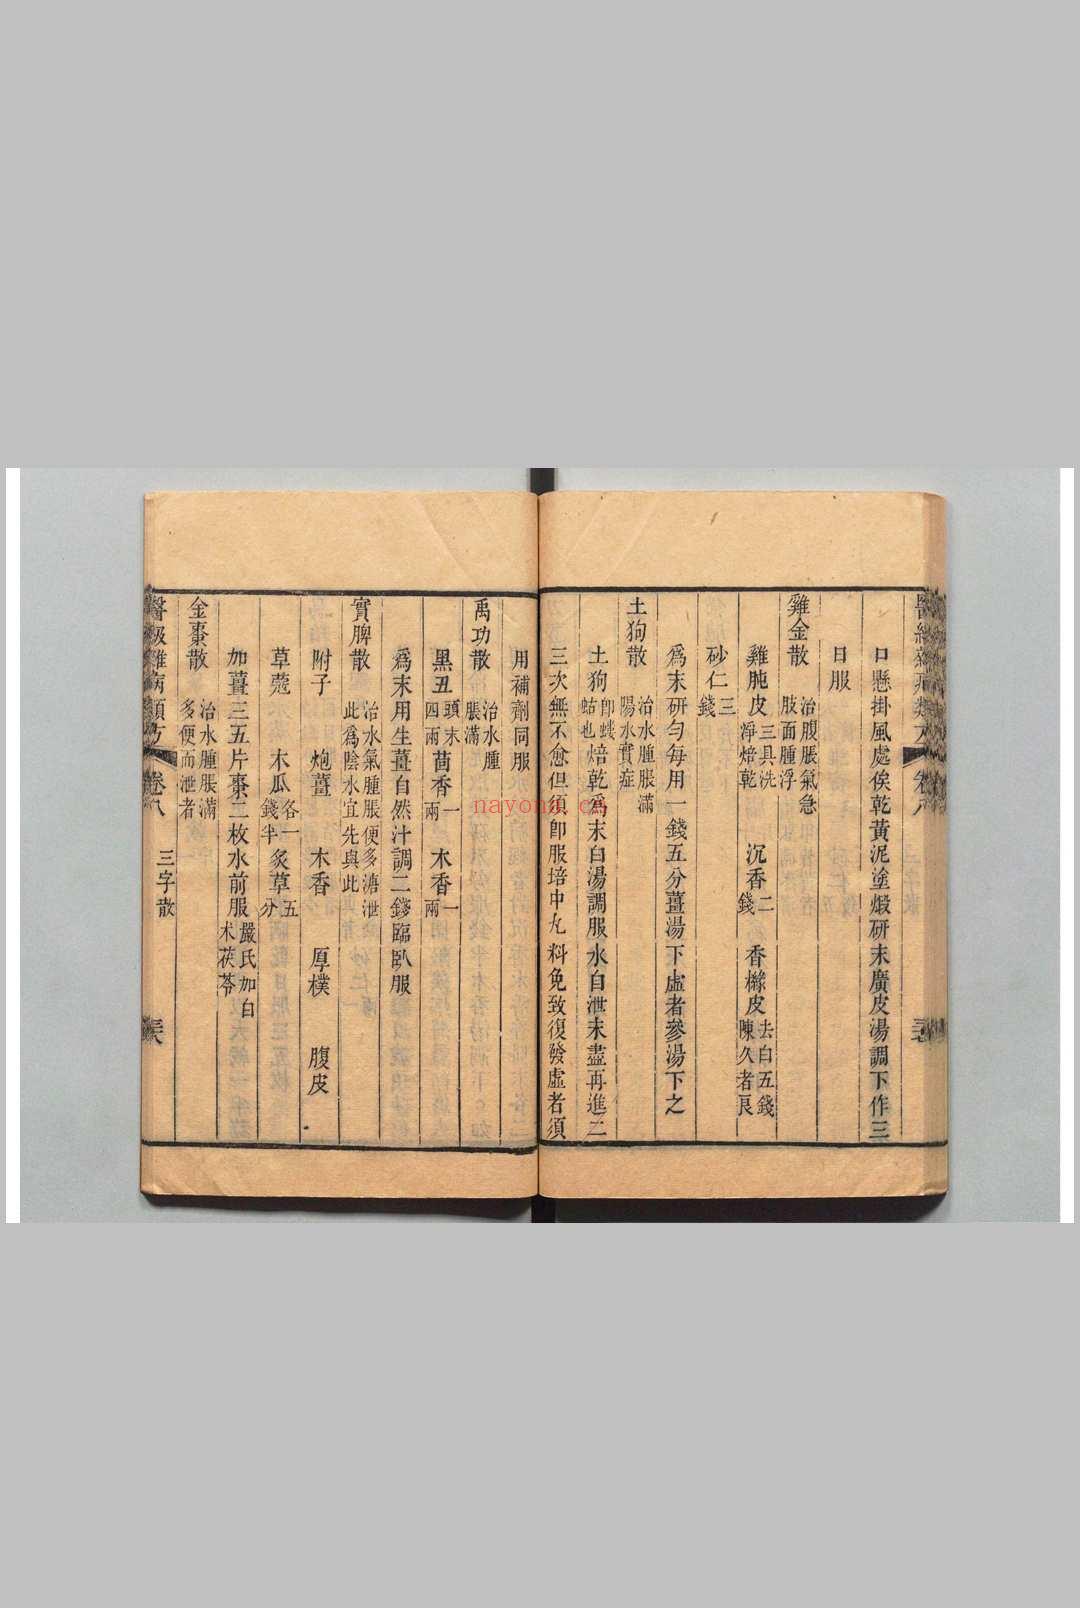 口懸掛風處俟乾黃泥塗煅研末廣皮湯調下作三
日服
雞金散 治腹脹氣急肢面腫浮
雞肫皮三具洗淨焙乾 沉香二錢 香櫞皮去白五錢陳久者良
砂仁三錢
爲末研勻每用一錢五分薑湯下虛者參湯下之
土狗散 治水腫脹滿陽水實症
土狗卽螻蛄也焙乾爲末白湯調服水自泄未盡再進二
三次無不愈但須卽服培中丸料免致復發虛者須
用補劑同服
禹功散 治水腫脹滿
黑丑頭末四兩 茴香一兩 木香一兩
爲末用生薑自然汁調二錢臨臥服
實脾散 治水氣腫脹便多溏泄此爲陰水宜先與此
附子 炮薑 木香 厚樸 腹皮
草蔻 木瓜各一錢半 炙草五分
加薑三五片棗二枚水前服嚴氏加白术茯苓
金棗散 治水腫脹滿多便而泄者
醫級雜病類方 卷八 三字散
nayona.cn